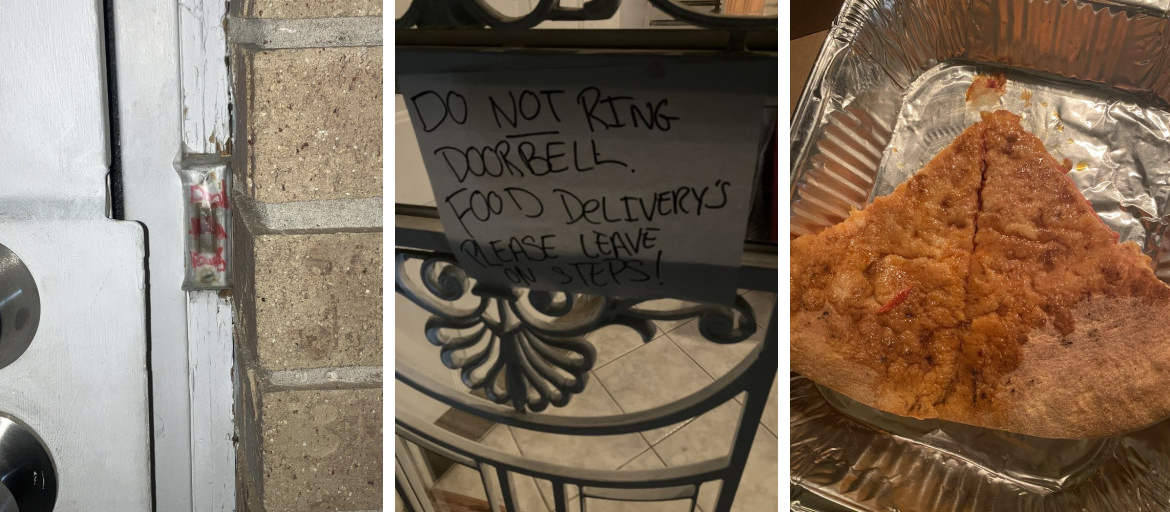 DO NOT RING
DOORBELL.
FOOD DELIVERY'S
PLEASE LEAVE
ON STEPS!